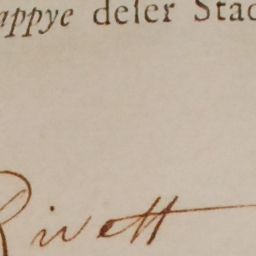 appye deser Stad
Rivett